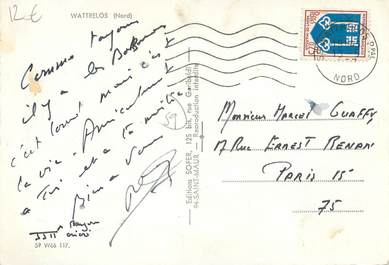 12€
WATTRELOS (Nord)
Comme toujours
il y a les
c'est tout mais c'est
la vie. Amicalement
à toi et à ta
Bien à vous
59 W46 117.
Editions SOFER, 125 bis, rue Garibaldi
94-SAINT-MAUR — Reproduction interdite
59
NORD
Monsieur Marcel Guaffy
17 Rue Ernest Renan
Paris 15e
75